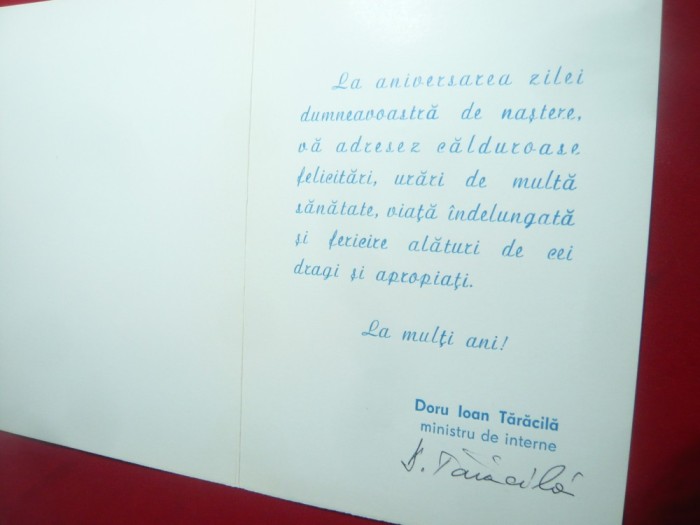 La aniversarea zilei
dumneavoastră de naştere,
vă adresez călduroase
felicitări, urări de multă
sănătate, viaţă îndelungată
şi fericire alături de cei
dragi şi apropiaţi.
La mulţi ani!
Doru Ioan Tărăcilă
ministru de interne
D. Tărăcilă